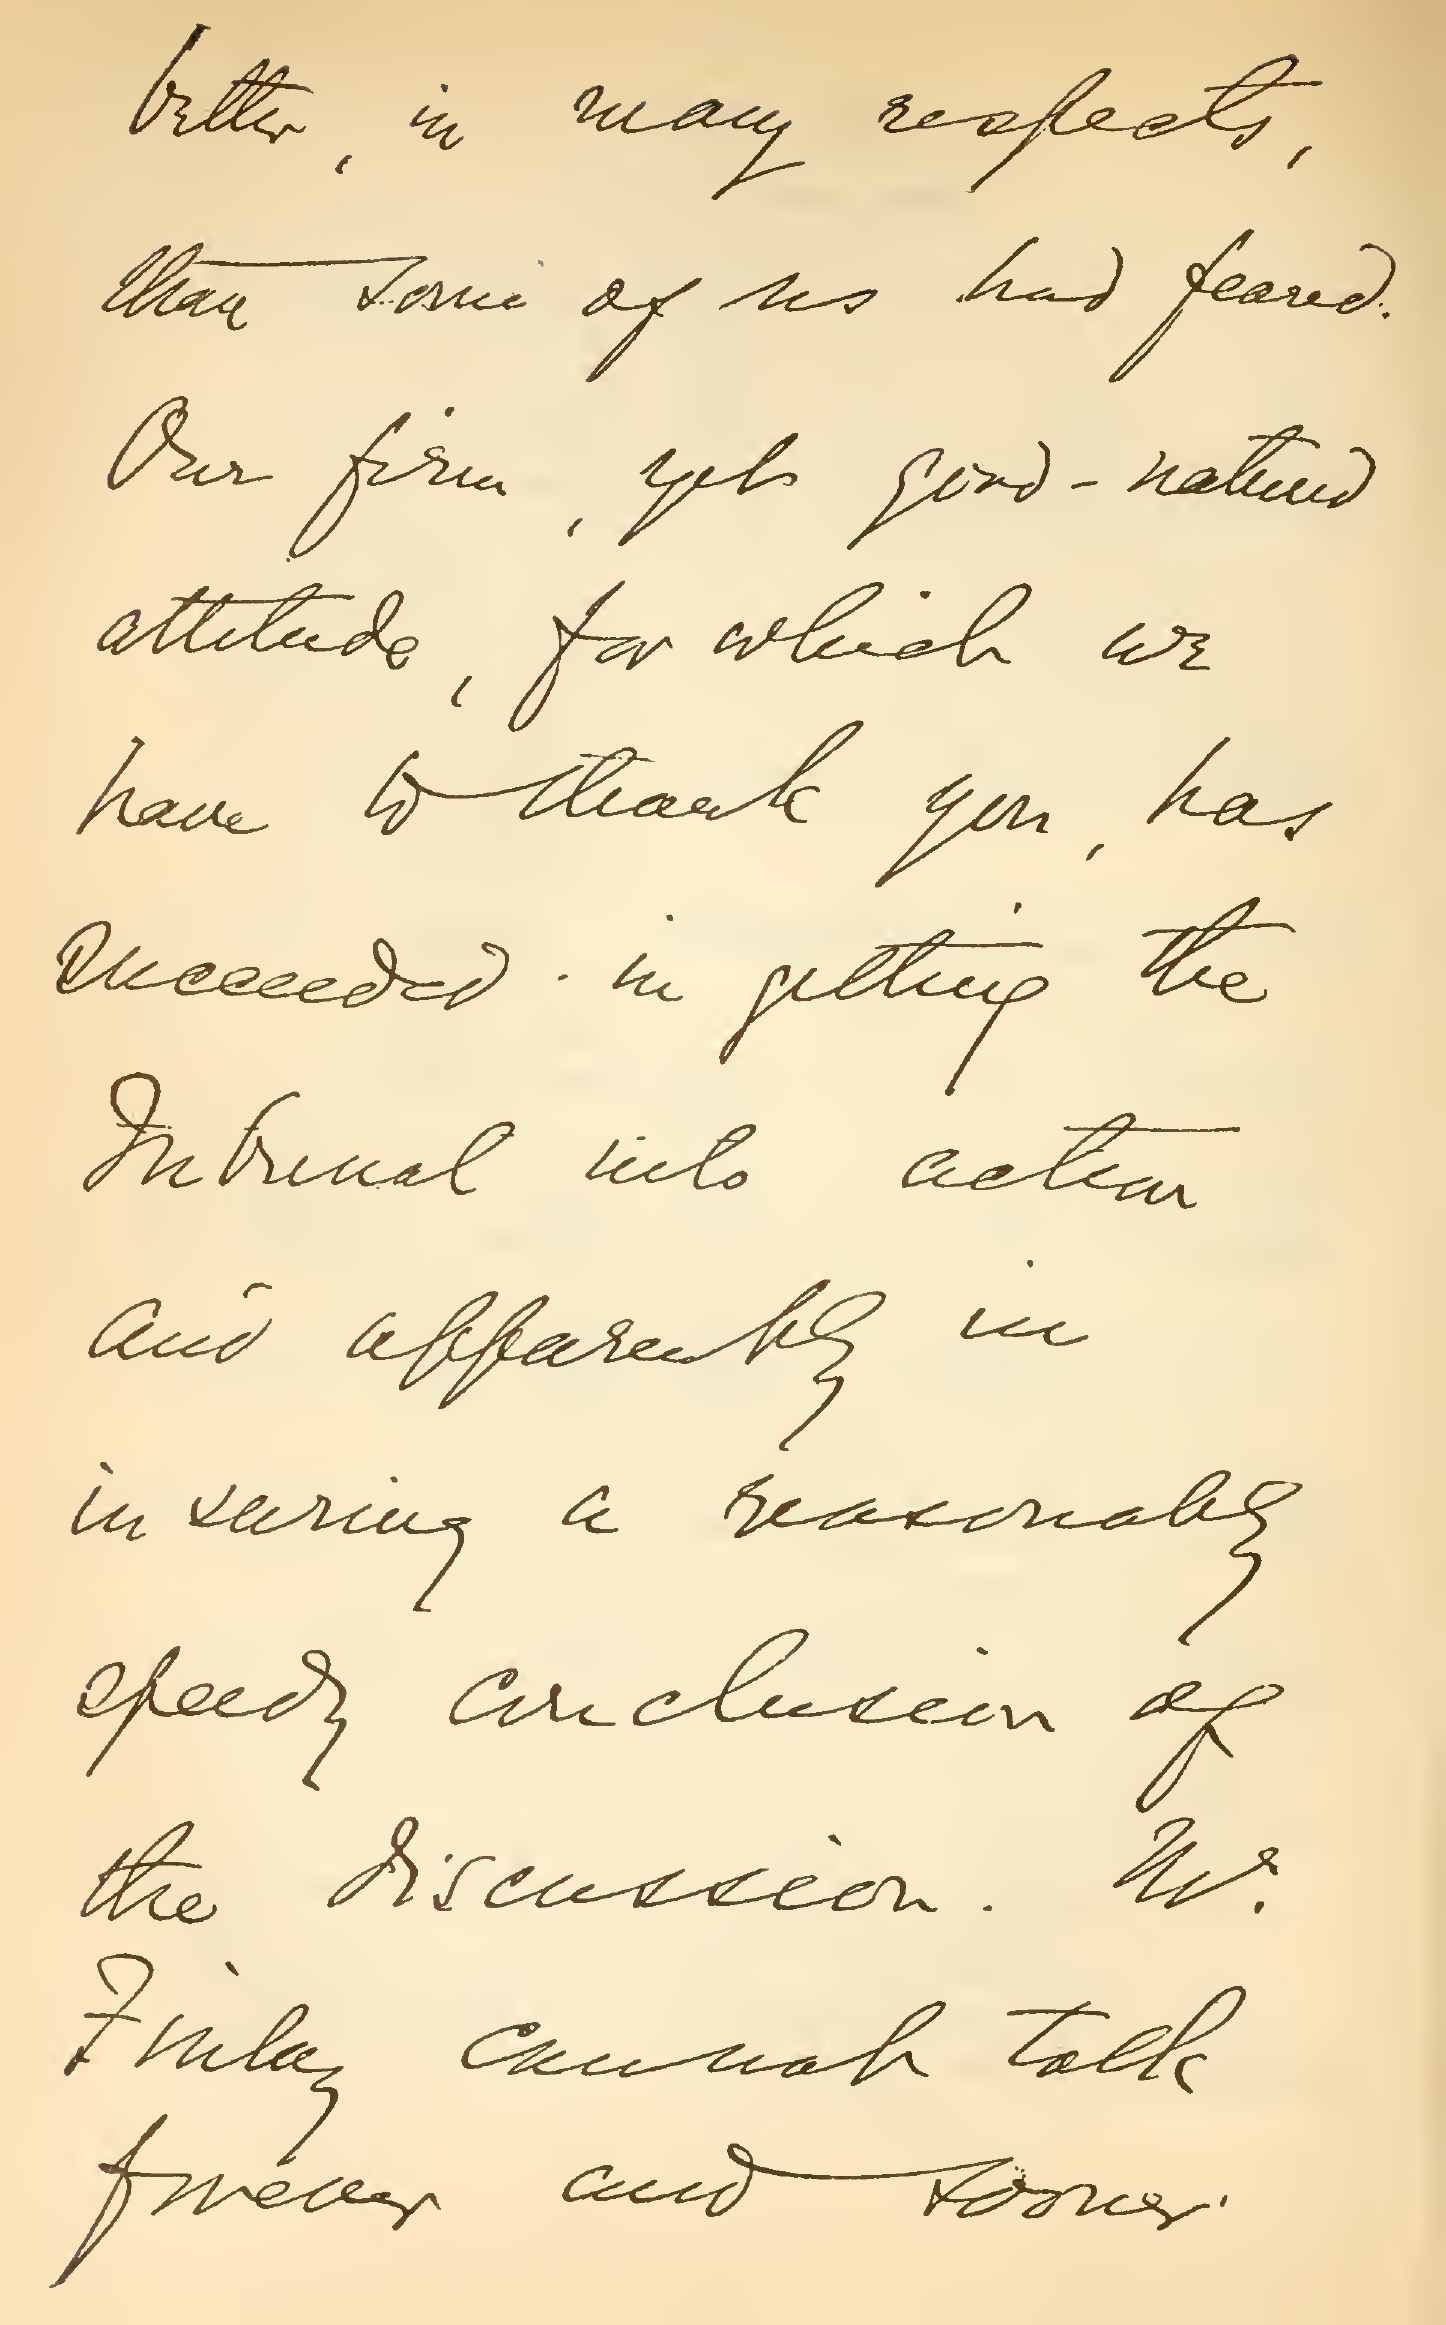 better, in many respects,
than some of us had feared.
Our firm, yet good-natured
attitude, for which we
have to thank you, has
succeeded in getting the
Tribunal into action
and apparently in
insuring a reasonably
speedy conclusion of
the discussion. Mr.
Finlay cannot talk
forever and sooner